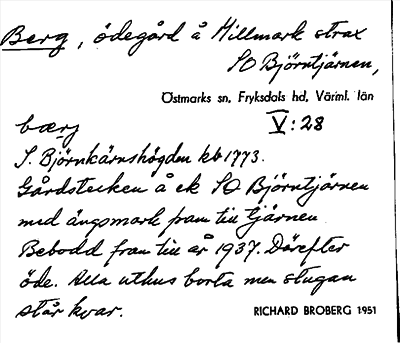 Berg, ödegård å Hillmark strax
SO Björntjärnen,
Östmarks sn, Fryksdals hd, Värml. län
bærj
V:28
S. Björnkärnshögden kb 1773.
Gårdstecken å ek SO Björntjärnen
med ängsmark fram till tjärnen.
Bebodd fram till år 1937. Därefter
öde. Alla uthus borta men stugan
står kvar.
RICHARD BROBERG 1951